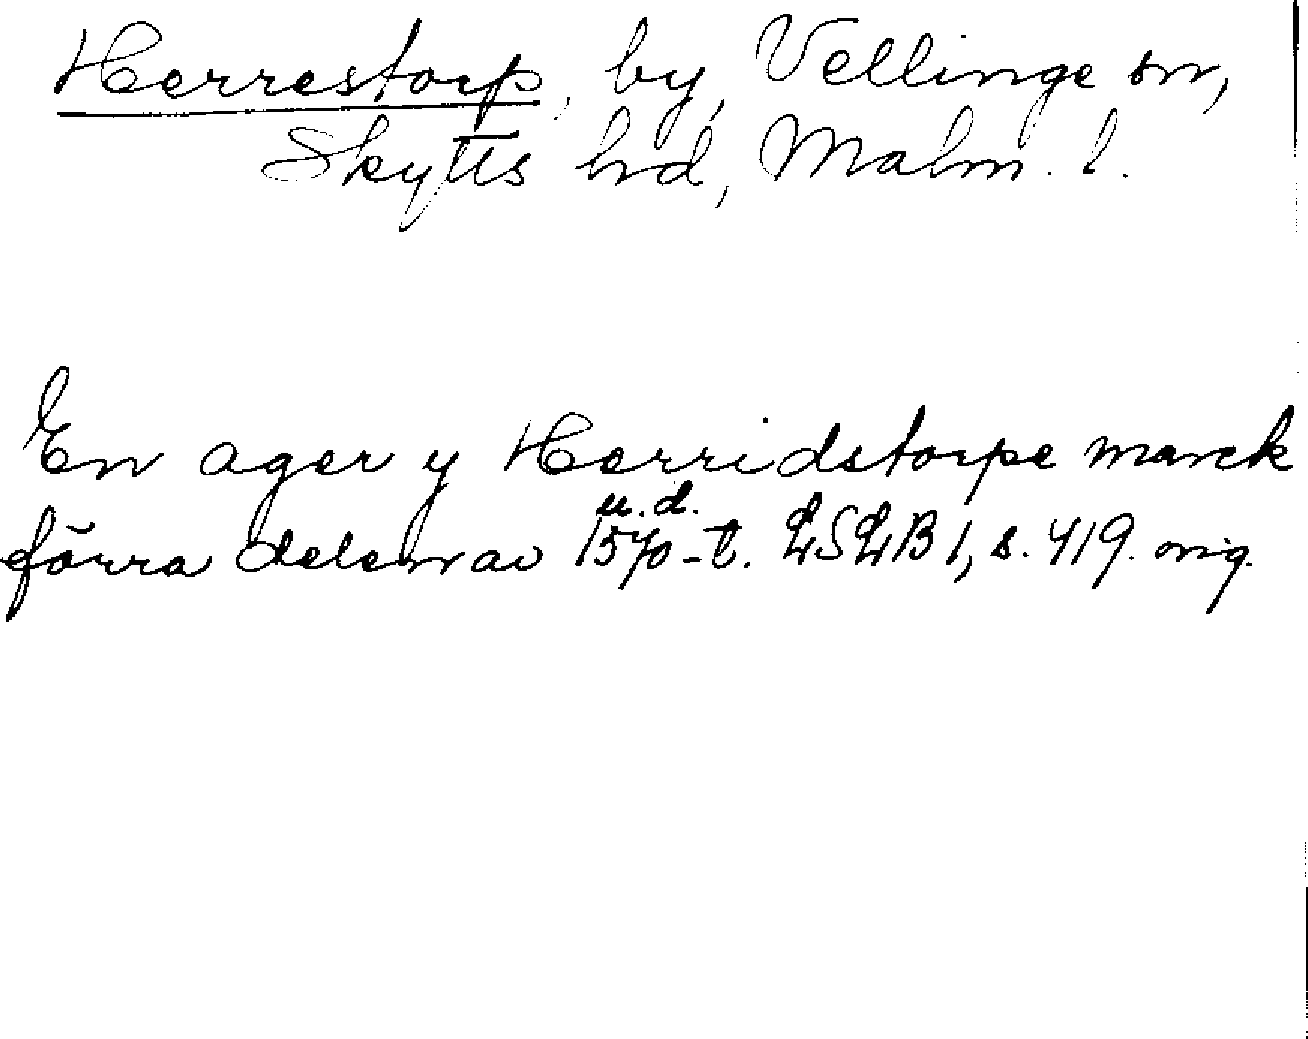 Herrestorp, by, Vellinge sn,
Skytts hd, Malm. l.
En ager y Herridstorpe marck
u. d.
förra delen av 1570-t. LSLB 1, s. 419. orig.